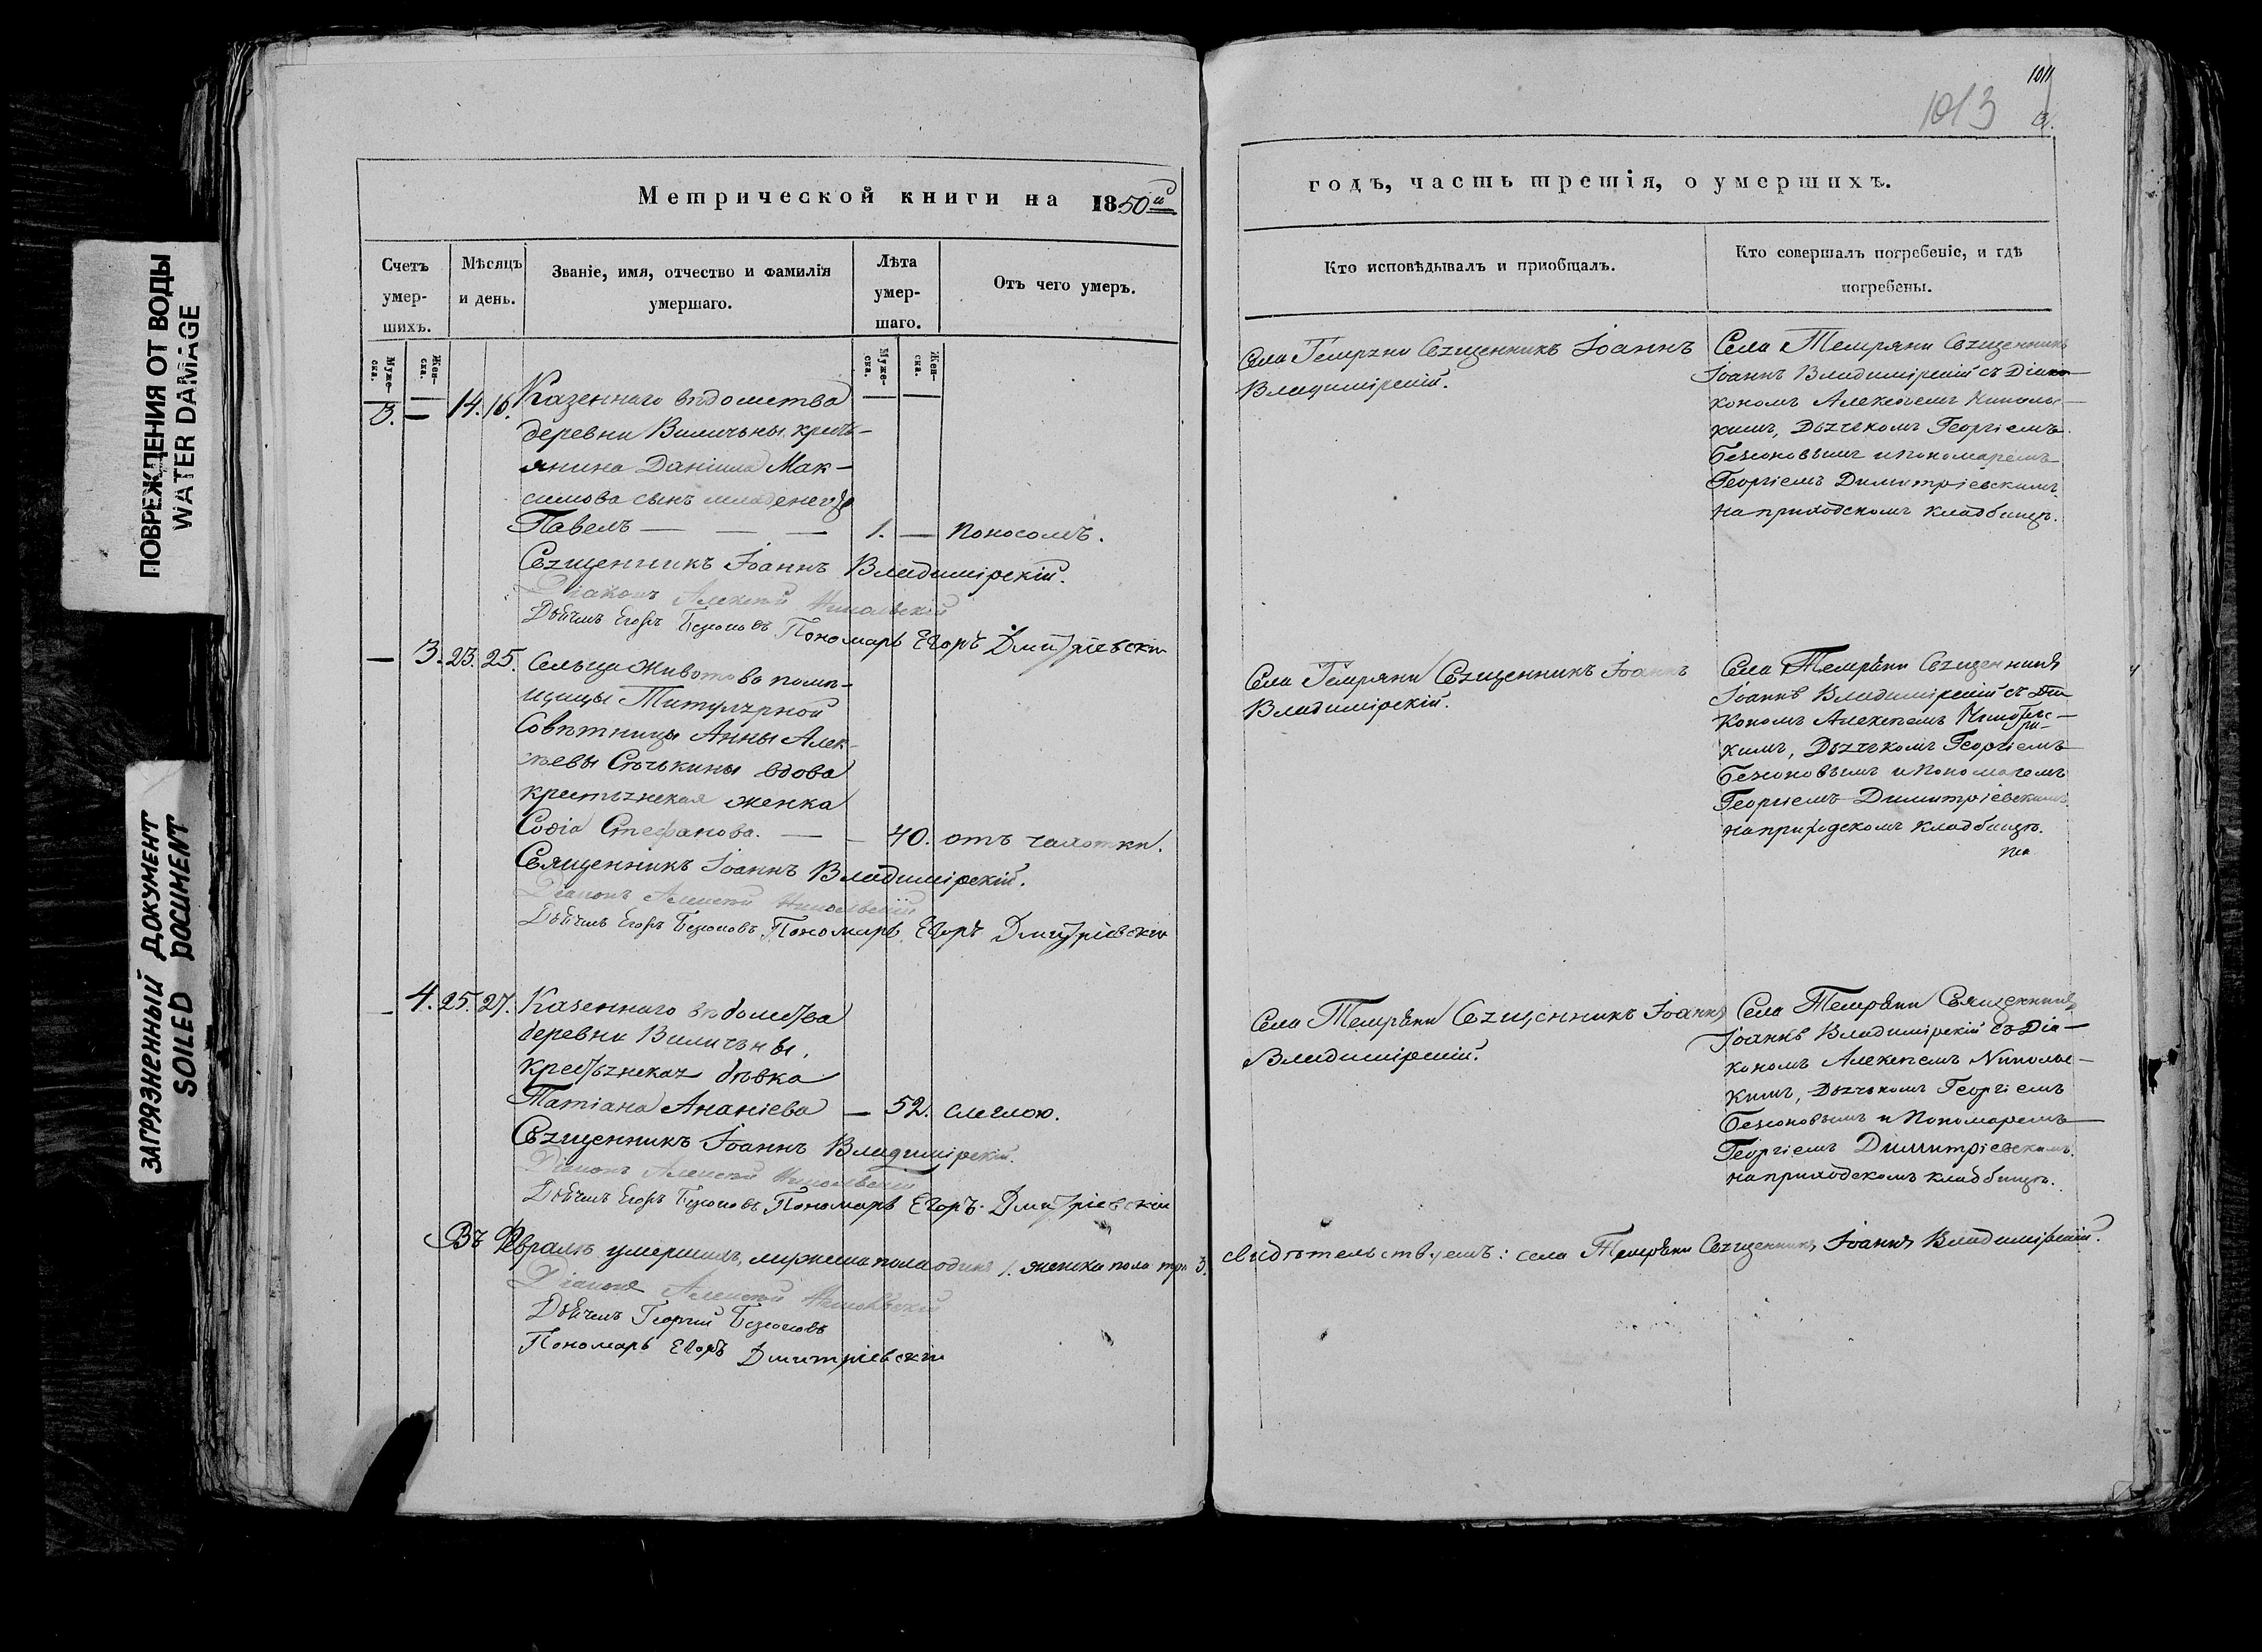 ПОВРЕЖДЕНИЯ ОТ ВОДЫ
WATER DAMAGE
ЗАГРЯЗНЕННЫЙ ДОКУМЕНТ
SOILED DOCUMENT
Метрической книги на 1850й
Счетъ умершихъ.
Мѣсяцъ и день.
Званіе, имя, отчество и фамилія умершаго.
Лѣта умершаго.
Отъ чего умеръ.
Муже-ска.
Жен-ска.
Муже-ска.
Жен-ска.
3. — 14. 16. Казеннаго вѣдомства
деревни Виличьны кресть-
янина Даніила Мак-
симова сынъ младенецъ
Павелъ — — 1. — поносомъ.
Священникъ Іоаннъ Владимірскій.
Діаконъ Алексѣй Никольскій
Дьячекъ Егоръ Безсоновъ Пономарь Егоръ Дмитріевскій
— 3. 23. 25. Сельца Животова помѣ-
щицы Титулярной
Совѣтницы Анны Алек-
сѣевы Сѣчькины вдова
крестьянская женка
Софія Стефанова. — — 40. отъ чахотки.
Священникъ Іоаннъ Владимірскій.
Діаконъ Алексѣй Никольскій
Дьячекъ Егоръ Безсоновъ Пономарь Егоръ Дмитріевскій
— 4. 25. 27. Казеннаго вѣдомства
деревни Виличьны,
крестьянская дѣвка
Татіана Ананіева — 52. слеглою.
Священникъ Іоаннъ Владимірскій.
Діаконъ Алексѣй Никольскій
Дьячекъ Егоръ Безсоновъ Пономарь Егоръ Дмитріевскій
Въ Февралѣ умершихъ, мужеска пола одинъ 1. женска пола три 3.
Діаконъ Алексѣй Никольскій
Дьячекъ Георгій Безсоновъ
Пономарь Егоръ Дмитріевскій
1011
1013
годъ, часть третія, о умершихъ.
Кто исповѣдывалъ и приобщалъ.
Кто совершалъ погребеніе, и гдѣ погребены.
Села Темряни Священникъ Іоаннъ
Владимірскій.
Села Темряни Священникъ
Іоаннъ Владимірскій съ Діа-
кономъ Алексѣемъ Николь-
скимъ, Дьячкомъ Георгіемъ
Безсоновымъ и пономаремъ
Георгіемъ Димитріевскимъ
на приходскомъ кладбищѣ.
Села Темряни Священникъ Іоаннъ
Владимірскій.
Села Темряни Священникъ
Іоаннъ Владимірскій съ Діа-
кономъ Алексѣемъ Николь-
скимъ, Дьячкомъ Георгіемъ
Безсоновымъ и Пономаремъ
Георгіемъ Димитріевскимъ
на приходскомъ кладбищѣ.
Села Темряни Священникъ Іоаннъ
Владимірскій.
Села Темряни Священникъ
Іоаннъ Владимірскій съ Діа-
кономъ Алексѣемъ Николь-
скимъ, Дьячкомъ Георгіемъ
Безсоновымъ и Пономаремъ
Георгіемъ Димитріевскимъ
на приходскомъ кладбищѣ.
свидѣтельствуемъ: села Темряни Священникъ Іоаннъ Владимірскій.